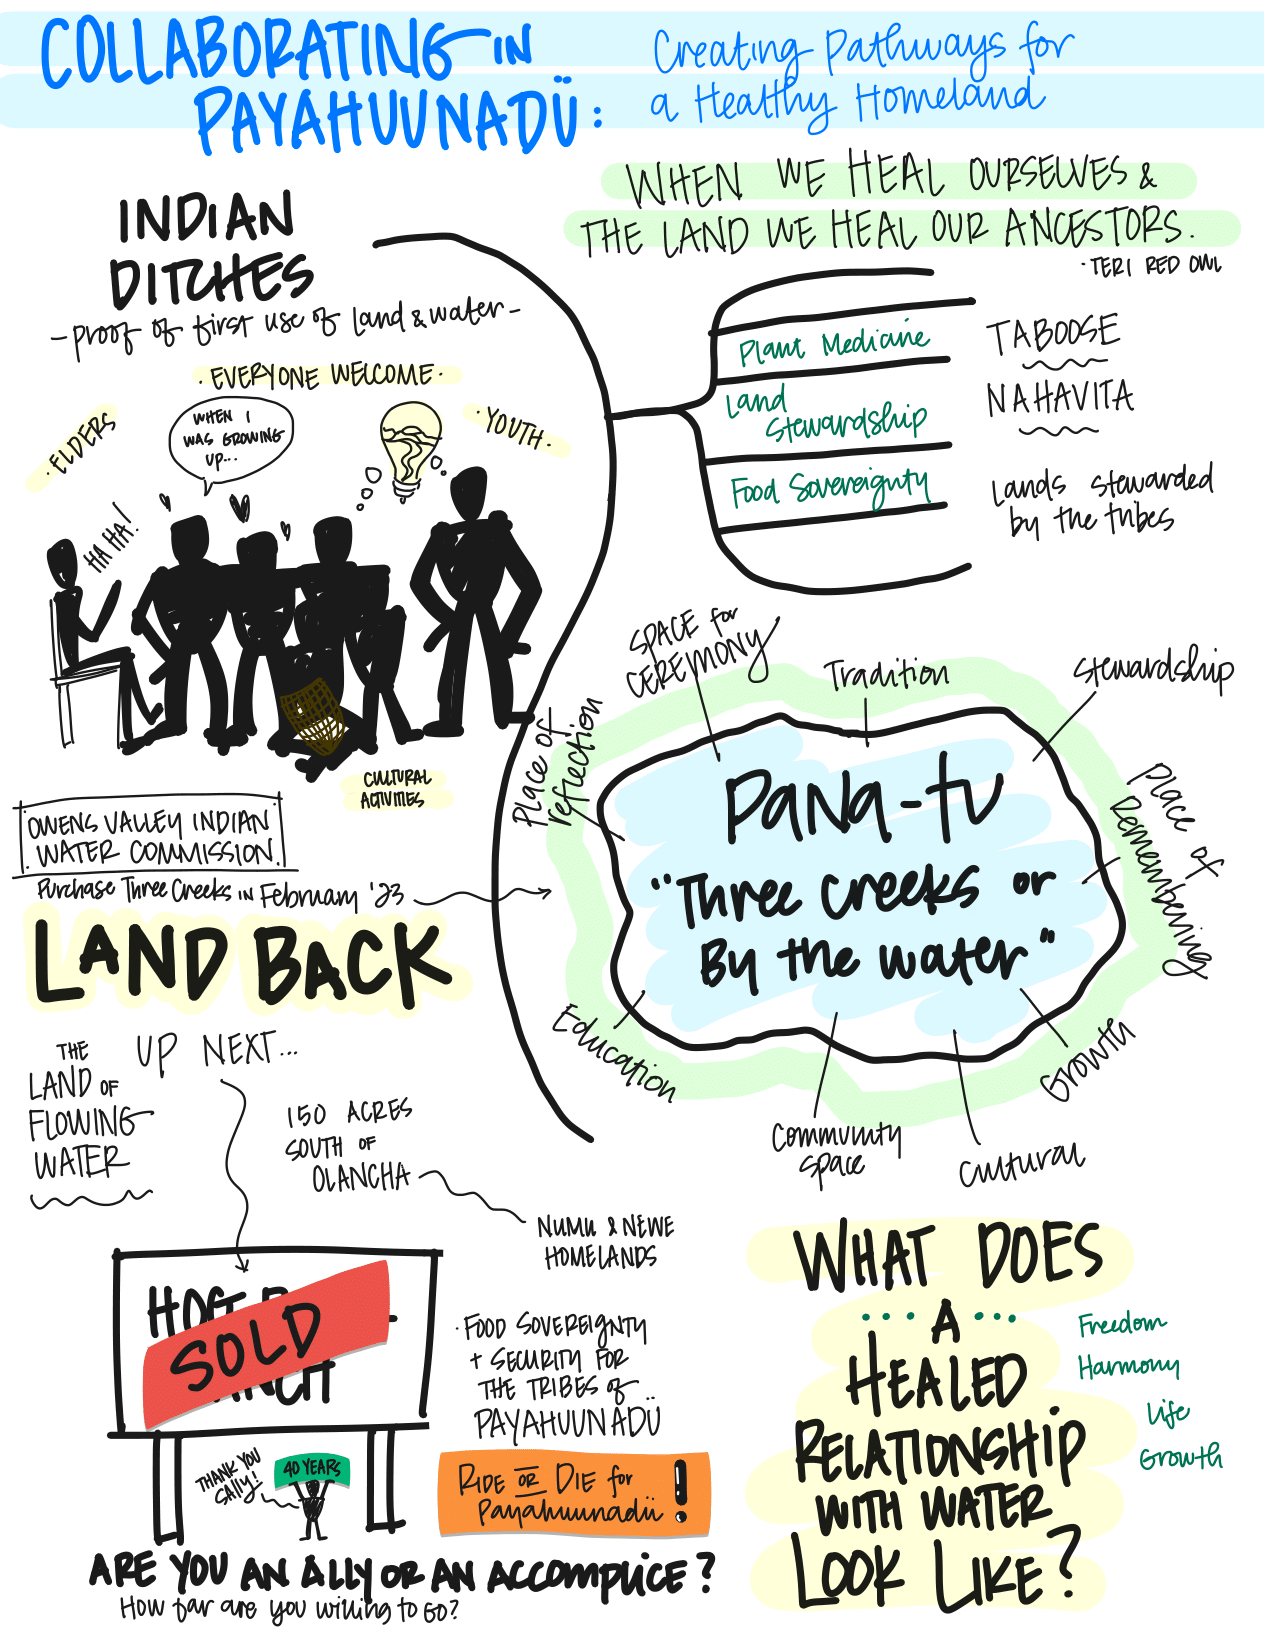 COLLABORATING IN
PAYAHUUNADÜ:
Creating Pathways for
a Healthy Homeland
WHEN WE HEAL OURSELVES &
THE LAND WE HEAL OUR ANCESTORS.
· TERI RED OWL
INDIAN
DITCHES
- Proof of first use of land & water -
· EVERYONE WELCOME ·
· ELDERS ·
WHEN I
WAS GROWING
UP...
· YOUTH ·
HA HA!
CULTURAL
ACTIVITIES
Plant Medicine
Land
Stewardship
Food Sovereignty
TABOOSE
NAHAVITA
Lands stewarded
by the tribes
SPACE for
CEREMONY
Tradition
Stewardship
Place of
reflection
Place of
Remembering
PANA-TU
"Three Creeks or
By the water"
Education
Growth
Community
Space
Cultural
OWENS VALLEY INDIAN
WATER COMMISSION
Purchase Three Creeks in February '23
LAND BACK
THE
LAND OF
FLOWING
WATER
UP NEXT...
150 ACRES
SOUTH OF
OLANCHA
NUMU & NEWE
HOMELANDS
SOLD
THANK YOU
SALLY!
40 YEARS
· FOOD SOVEREIGNTY
+ SECURITY FOR
THE TRIBES OF
PAYAHUUNADÜ
RIDE OR DIE for
Payahuunadü!
ARE YOU AN ALLY OR AN ACCOMPLICE?
How far are you willing to go?
WHAT DOES
A
HEALED
RELATIONSHIP
WITH WATER
LOOK LIKE?
Freedom
Harmony
Life
Growth